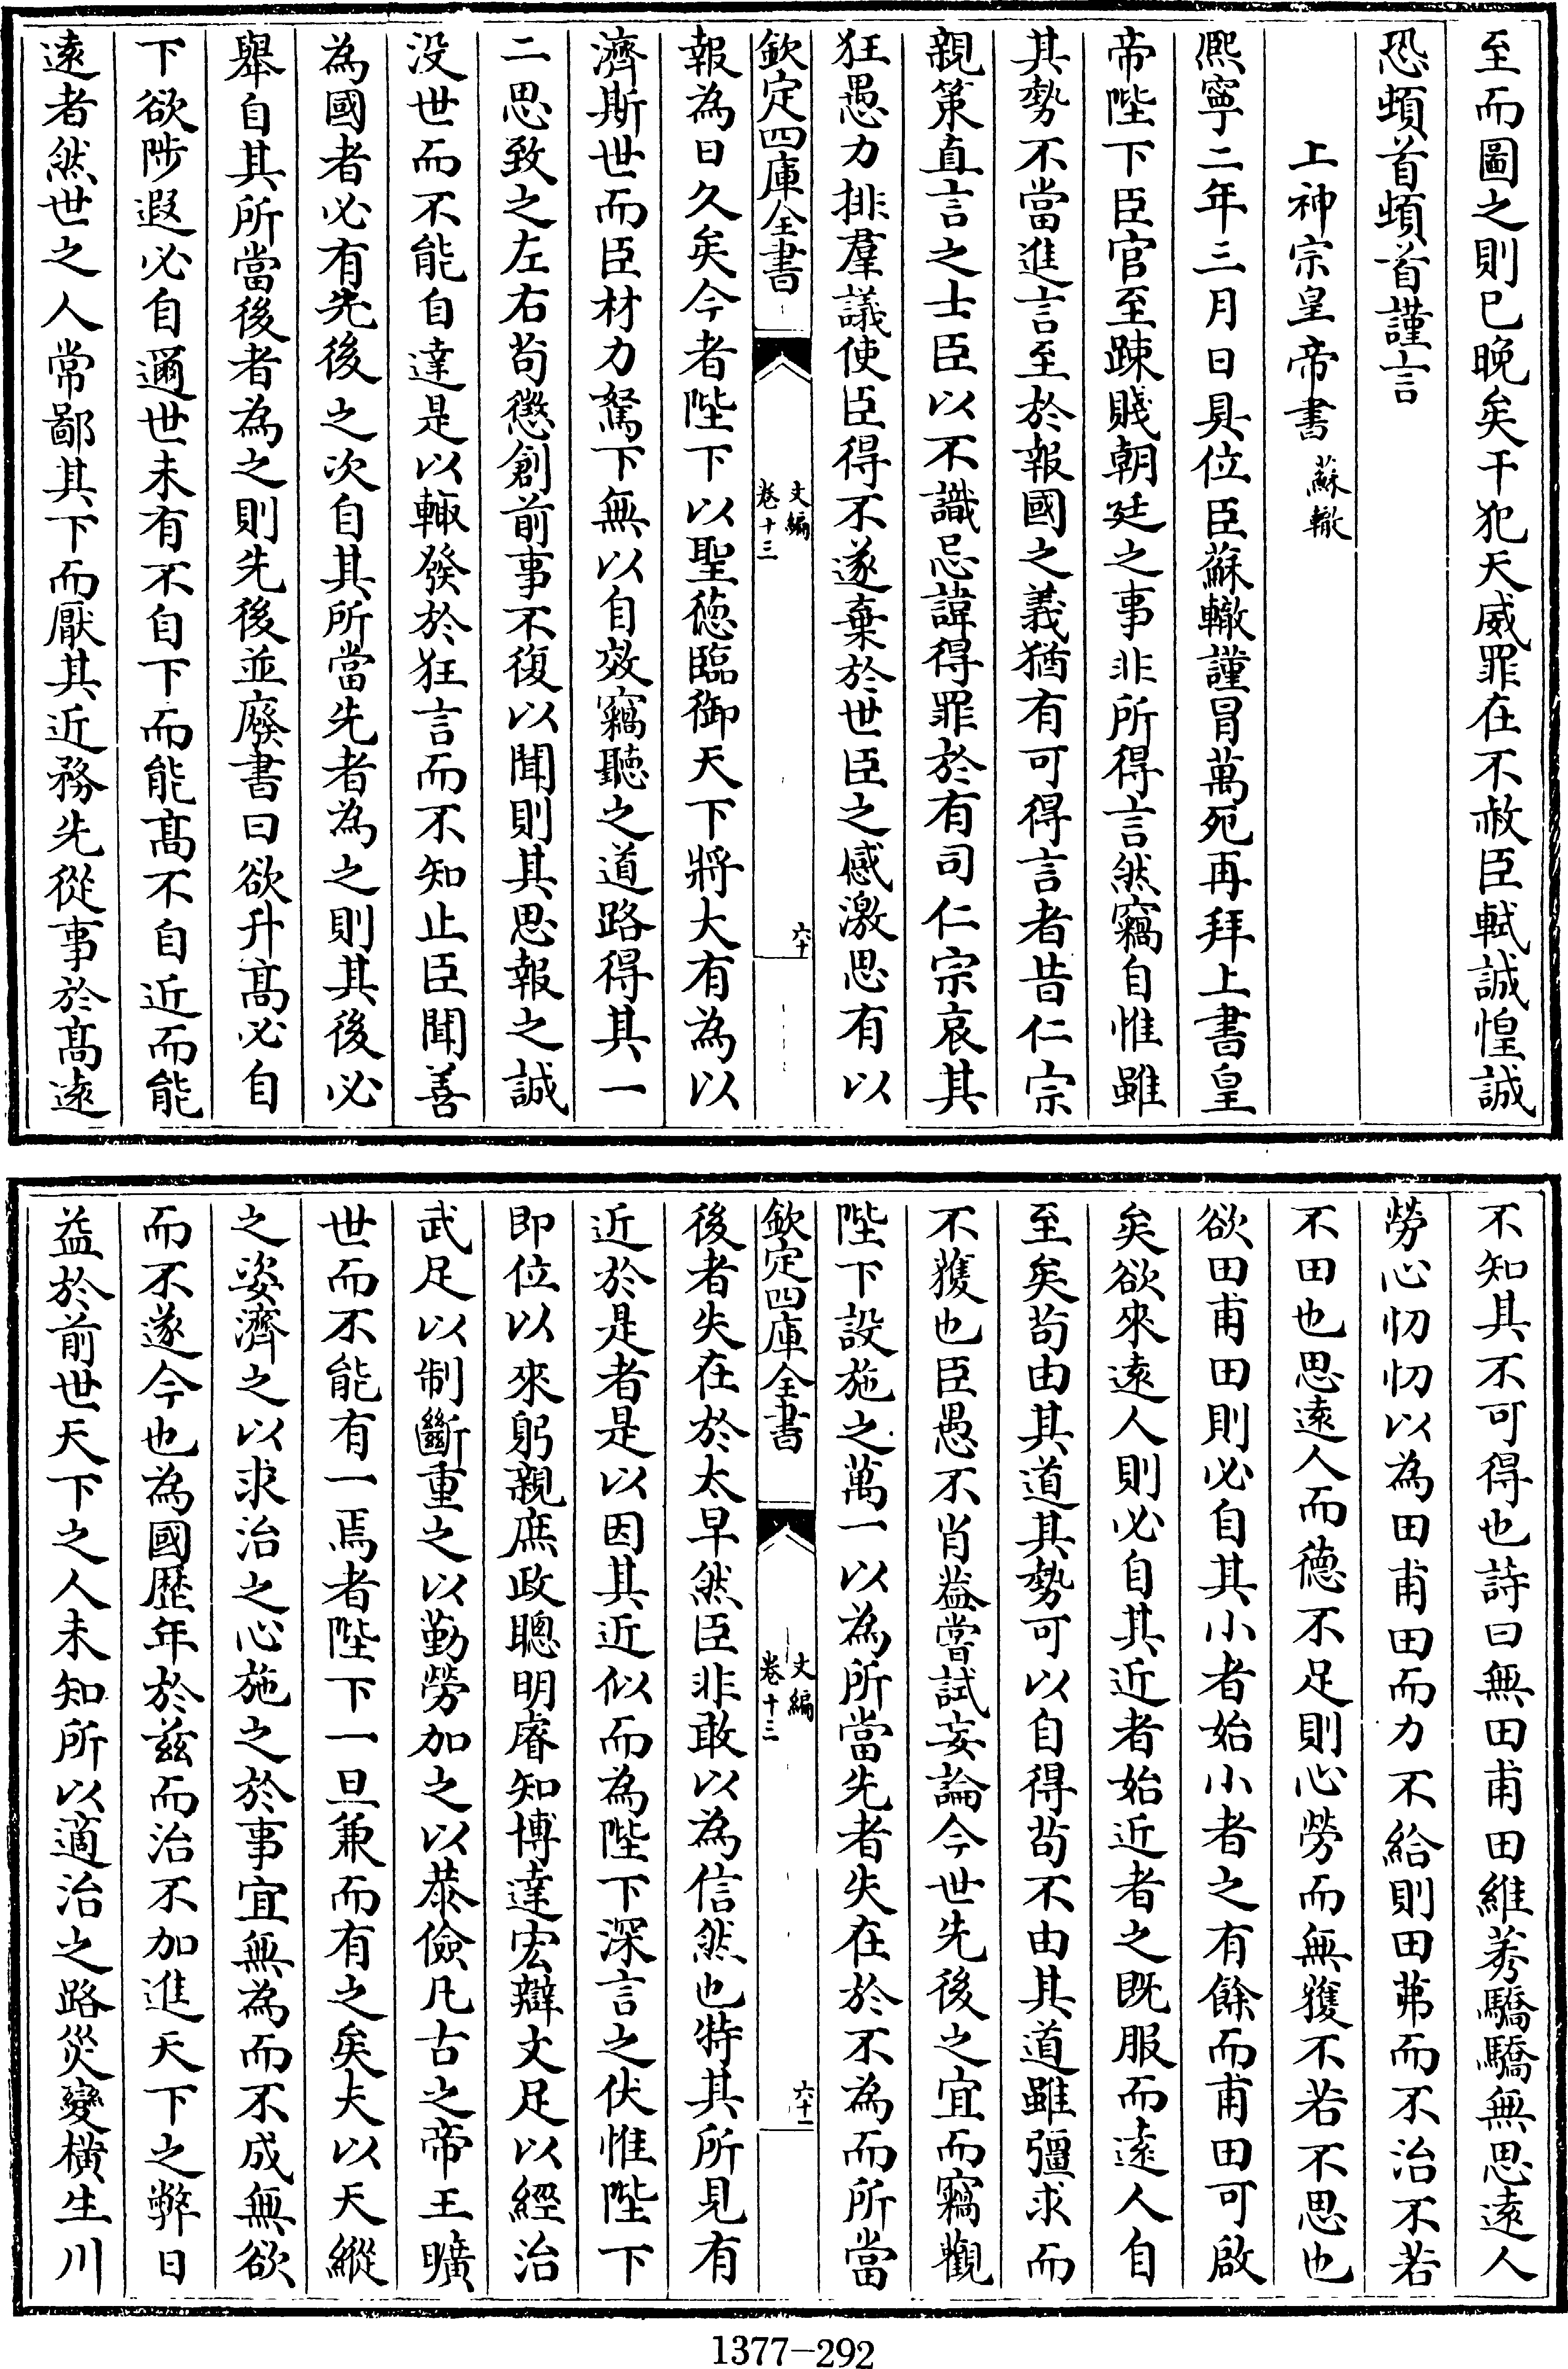 至而圖之則已晚矣干犯天威罪在不赦臣軾誠惶誠
恐頓首頓首謹言
上神宗皇帝書 蘇轍
熈寧二年三月日具位臣蘇轍謹冒萬死再拜上書皇
帝陛下臣官至踈賤朝廷之事非所得言然竊自惟雖
其勢不當進言至於報國之義猶有可得言者昔仁宗
親策直言之士臣以不識忌諱得罪於有司仁宗哀其
狂愚力排羣議使臣得不遂棄於世臣之感激思有以
欽定四庫全書 文編 卷十三 六十
報為日久矣今者陛下以聖徳臨御天下將大有為以
濟斯世而臣材力駑下無以自效竊聽之道路得其一
二思致之左右苟懲創前事不復以聞則其思報之誠
没世而不能自達是以輙發於狂言而不知止臣聞善
為國者必有先後之次自其所當先者為之則其後必
舉自其所當後者為之則先後並廢書曰欲升髙必自
下欲陟遐必自邇世未有不自下而能髙不自近而能
逺者然世之人常鄙其下而厭其近務先從事於髙逺
不知其不可得也詩曰無田甫田維莠驕驕無思逺人
勞心忉忉以為田甫田而力不給則田茀而不治不若
不田也思逺人而德不足則心勞而無獲不若不思也
欲田甫田則必自其小者始小者之有餘而甫田可啟
矣欲來逺人則必自其近者始近者之既服而逺人自
至矣苟由其道其勢可以自得苟不由其道雖彊求而
不獲也臣愚不肖葢嘗試妄論今世先後之宜而竊觀
陛下設施之萬一以為所當先者失在於不為而所當
欽定四庫全書 文編 卷十三 六十一
後者失在於太早然臣非敢以為信然也特其所見有
近於是者是以因其近似而為陛下深言之伏惟陛下
即位以來躬親庶政聰明睿知博達宏辯文足以經治
武足以制斷重之以勤勞加之以恭儉凡古之帝王曠
世而不能有一焉者陛下一旦兼而有之矣夫以天縱
之姿濟之以求治之心施之於事宜無為而不成無欲
而不遂今也為國歴年於兹而治不加進天下之弊日
益於前世天下之人未知所以適治之路災變橫生川
1377-292